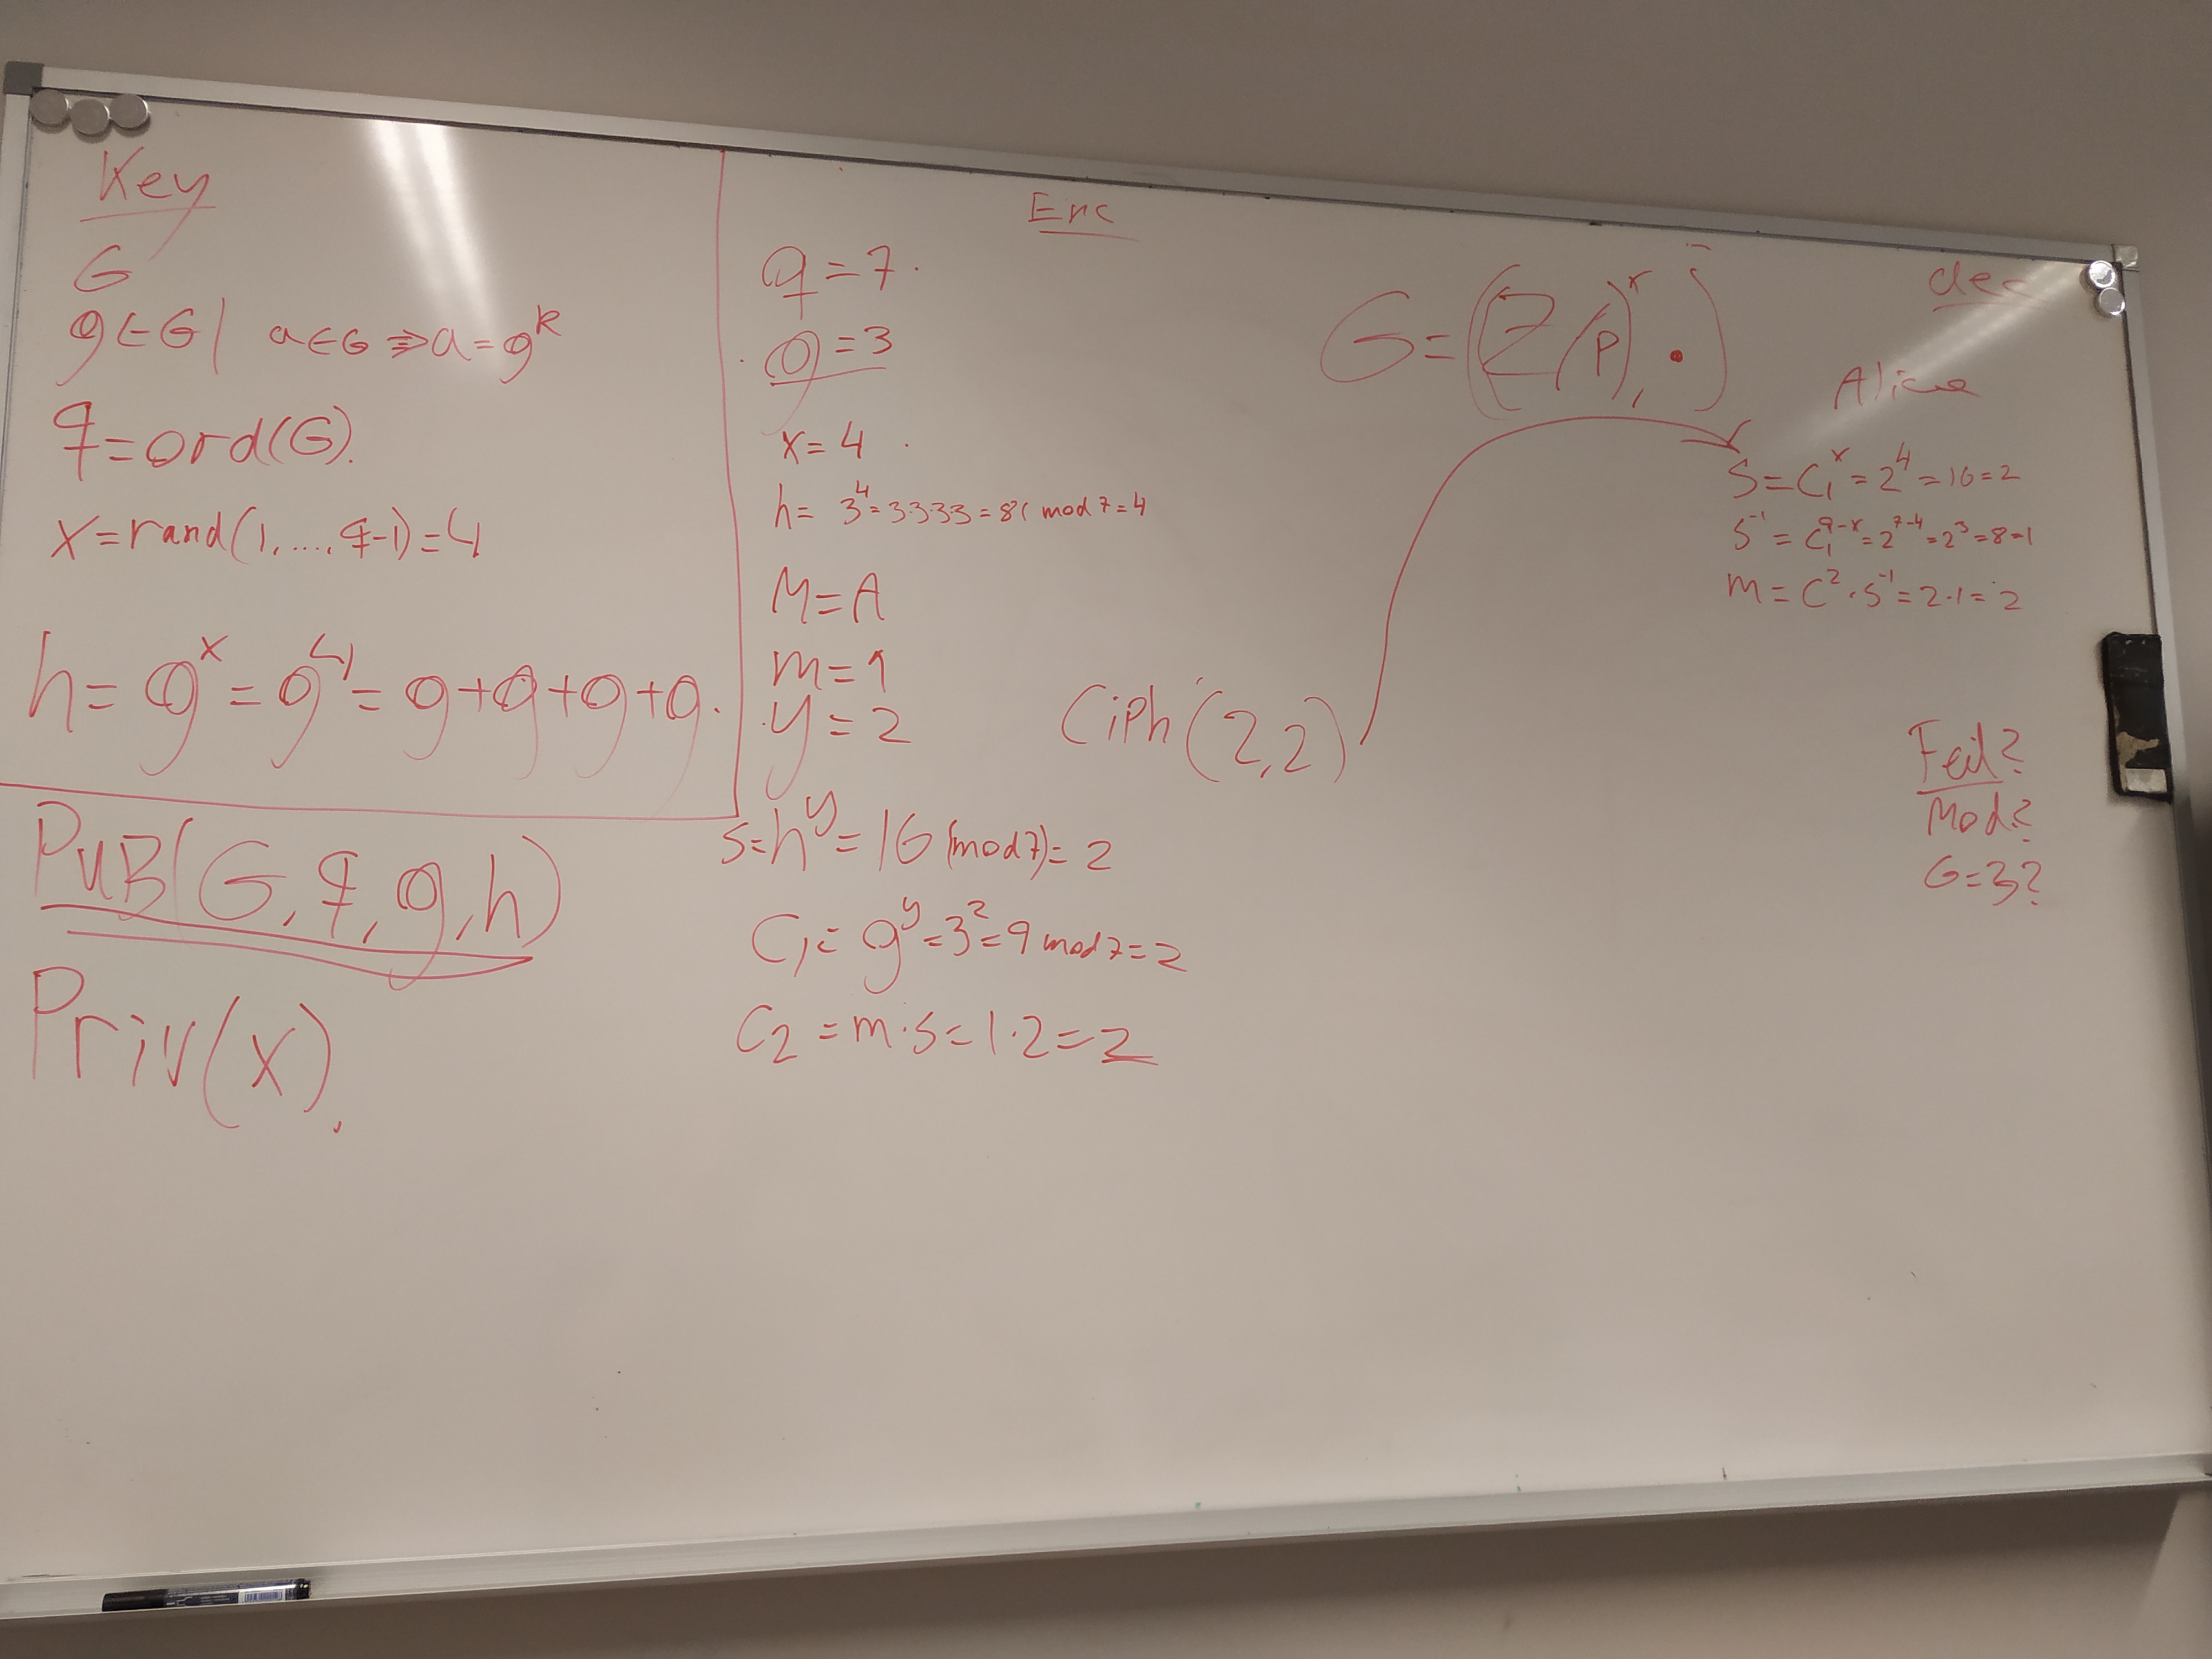 Key
G
g∈G | a∈G ⇒ a=g^k
q=ord(G).
x=rand(1,...,q-1)=4
h=g^x=g^4=g+g+g+g.
PUB(G,q,g,h)
Priv(x).
Enc
q=7.
g=3
x=4.
h= 3^4=3·3·3·3=81 mod 7=4
M=A
m=1
y=2
s=h^y=16 (mod 7)=2
C₁=g^y=3^2=9 mod 7=2
C₂=m·s=1·2=2
G=((Z/p)^x, •)
Ciph(2,2)
dec
Alice
S=C₁^x=2^4=16=2
S^-1=C₁^q-x=2^7-4=2^3=8=1
m=C^2·S^-1=2·1=2
Feil?
Mod?
G=3?